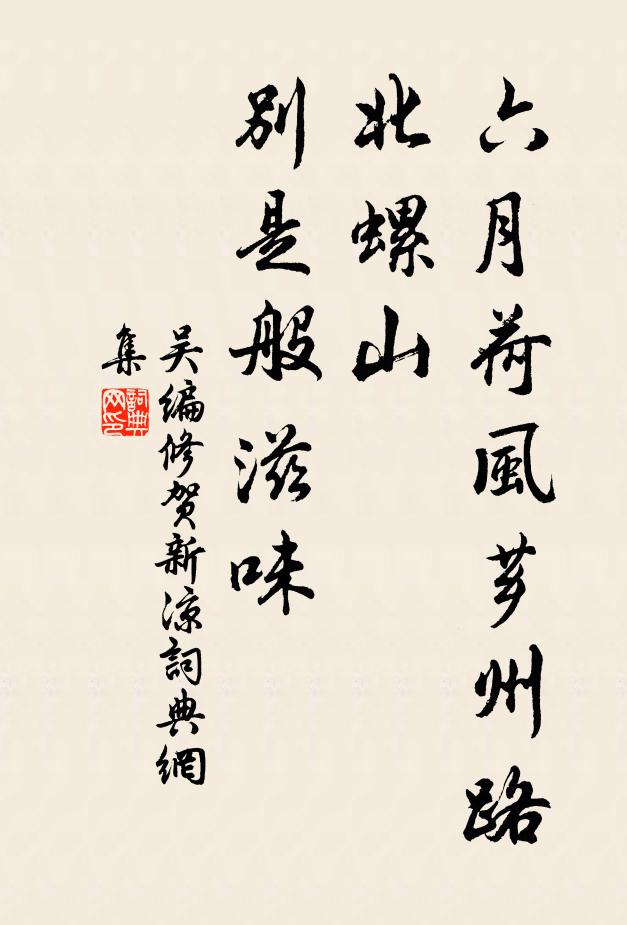 六月荷風芗州路
北螺山
別是般滋味
吴編修贺新涼詞典網
集
詞典
网印